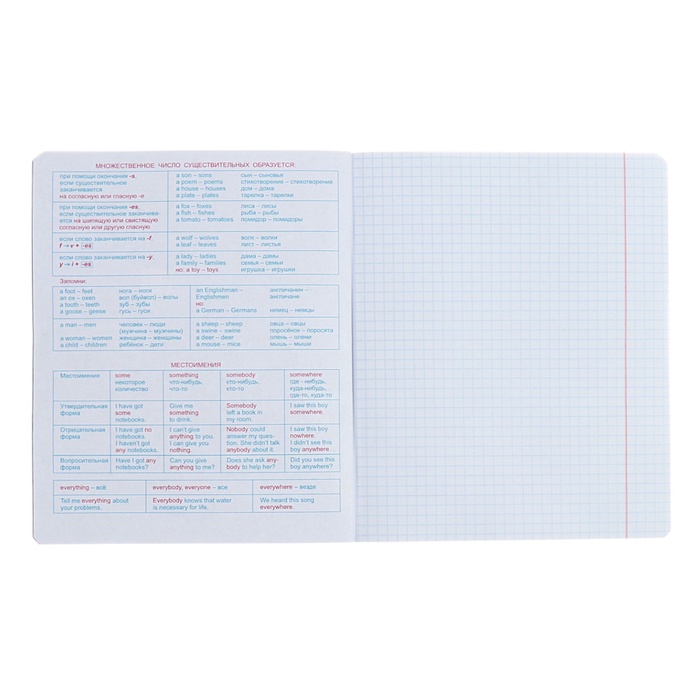 МНОЖЕСТВЕННОЕ ЧИСЛО СУЩЕСТВИТЕЛЬНЫХ ОБРАЗУЕТСЯ:
при помощи окончания -s, если существительное заканчивается на согласную или гласную -e
a son – sons сын – сыновья
a poem – poems стихотворение – стихотворения
a house – houses дом – дома
a plate – plates тарелка – тарелки
при помощи окончания -es, если существительное заканчивается на шипящую или свистящую согласную или другую гласную
a fox – foxes лиса – лисы
a fish – fishes рыба – рыбы
a tomato – tomatoes помидор – помидоры
если слово заканчивается на -f,
f → v + -es
a wolf – wolves волк – волки
a leaf – leaves лист – листья
если слово заканчивается на -y,
y → i + -es
a lady – ladies дама – дамы
a family – families семья – семьи
но: a toy – toys игрушка – игрушки
Запомни:
a foot – feet нога – ноги
an ox – oxen вол (буйвол) – волы
a tooth – teeth зуб – зубы
a goose – geese гусь – гуси
an Englishman – Englishmen англичанин – англичане
но:
a German – Germans немец – немцы
a man – men человек – люди (мужчина – мужчины)
a woman – women женщина – женщины
a child – children ребёнок – дети
a sheep – sheep овца – овцы
a swine – swine поросёнок – поросята
a deer – deer олень – олени
a mouse – mice мышь – мыши
МЕСТОИМЕНИЯ
Местоимения
some некоторое количество
something что-нибудь, что-то
somebody кто-нибудь, кто-то
somewhere где - нибудь, куда-нибудь, где-то, куда-то
Утвердительная форма
I have got some notebooks.
Give me something to drink.
Somebody left a book in my room.
I saw this boy somewhere.
Отрицательная форма
I have got no notebooks. I haven't got any notebooks.
I can't give anything to you. I can give you nothing.
Nobody could answer my question. She didn't talk anybody about it.
I saw this boy nowhere. I didn't see this boy anywhere.
Вопросительная форма
Have I got any notebooks?
Can you give anything to me?
Does she ask anybody to help her?
Did you see this boy anywhere?
everything – всё
everybody, everyone – все
everywhere – везде
Tell me everything about your problems.
Everybody knows that water is necessary for life.
We heard this song everywhere.